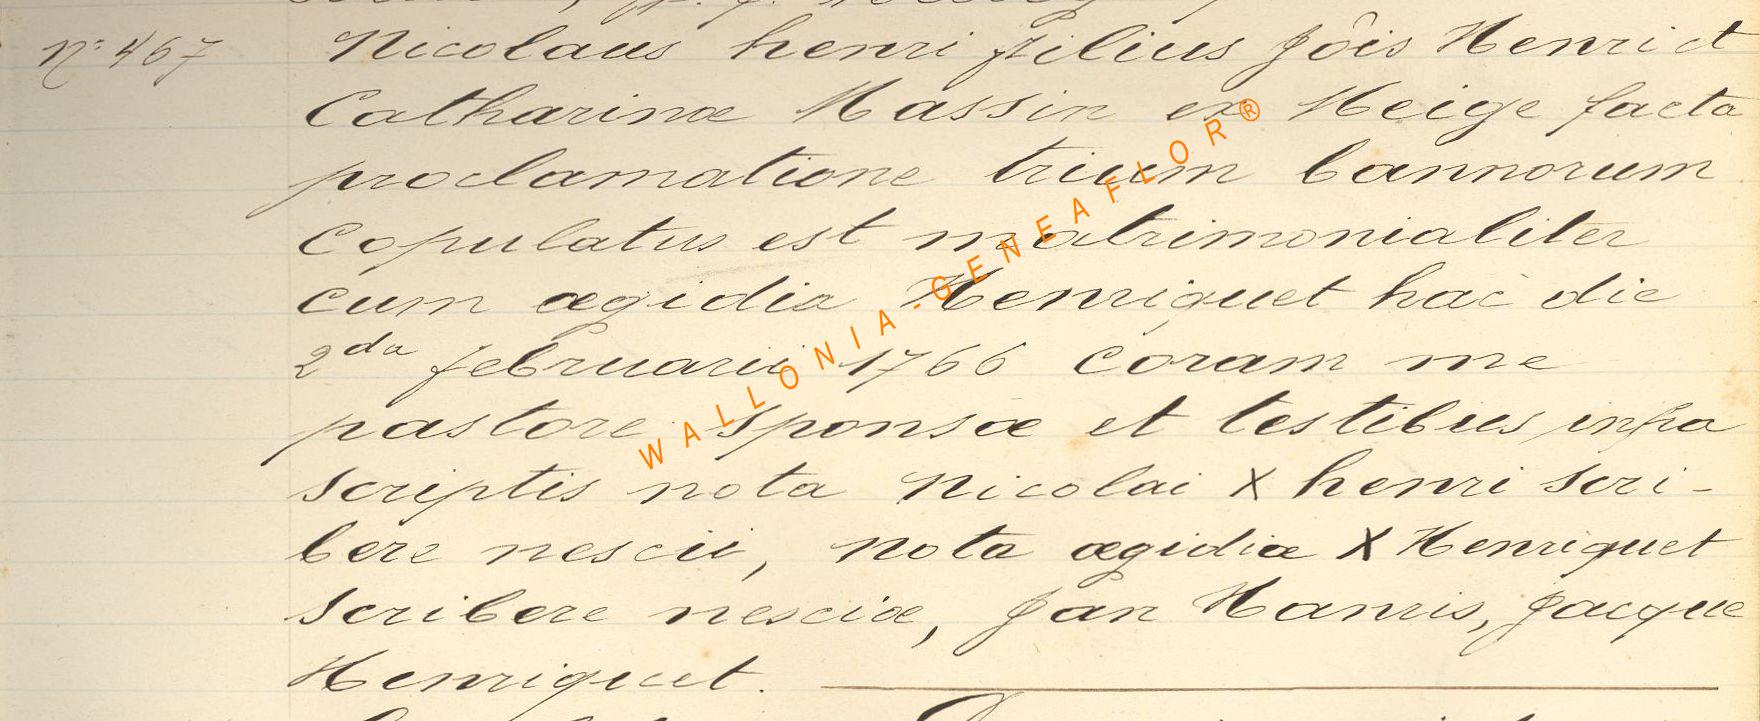 n° 467 Nicolaus henri filius Jôis Henri et
Catharinæ Massin ex Heige facta
proclamatione trium bannorum
Copulatus est matrimonialiter
cum ægidia Henriquet hac die
2da februarii 1766 coram me
pastore sponsæ et testibus infra
scriptis nota Nicolai X henri scri-
bere nescii, nota ægidiæ X Henriquet
scribere nesciæ, Jan Hanris, Jacque
Henriquet.
WALLONIA-GENEAFLOR®